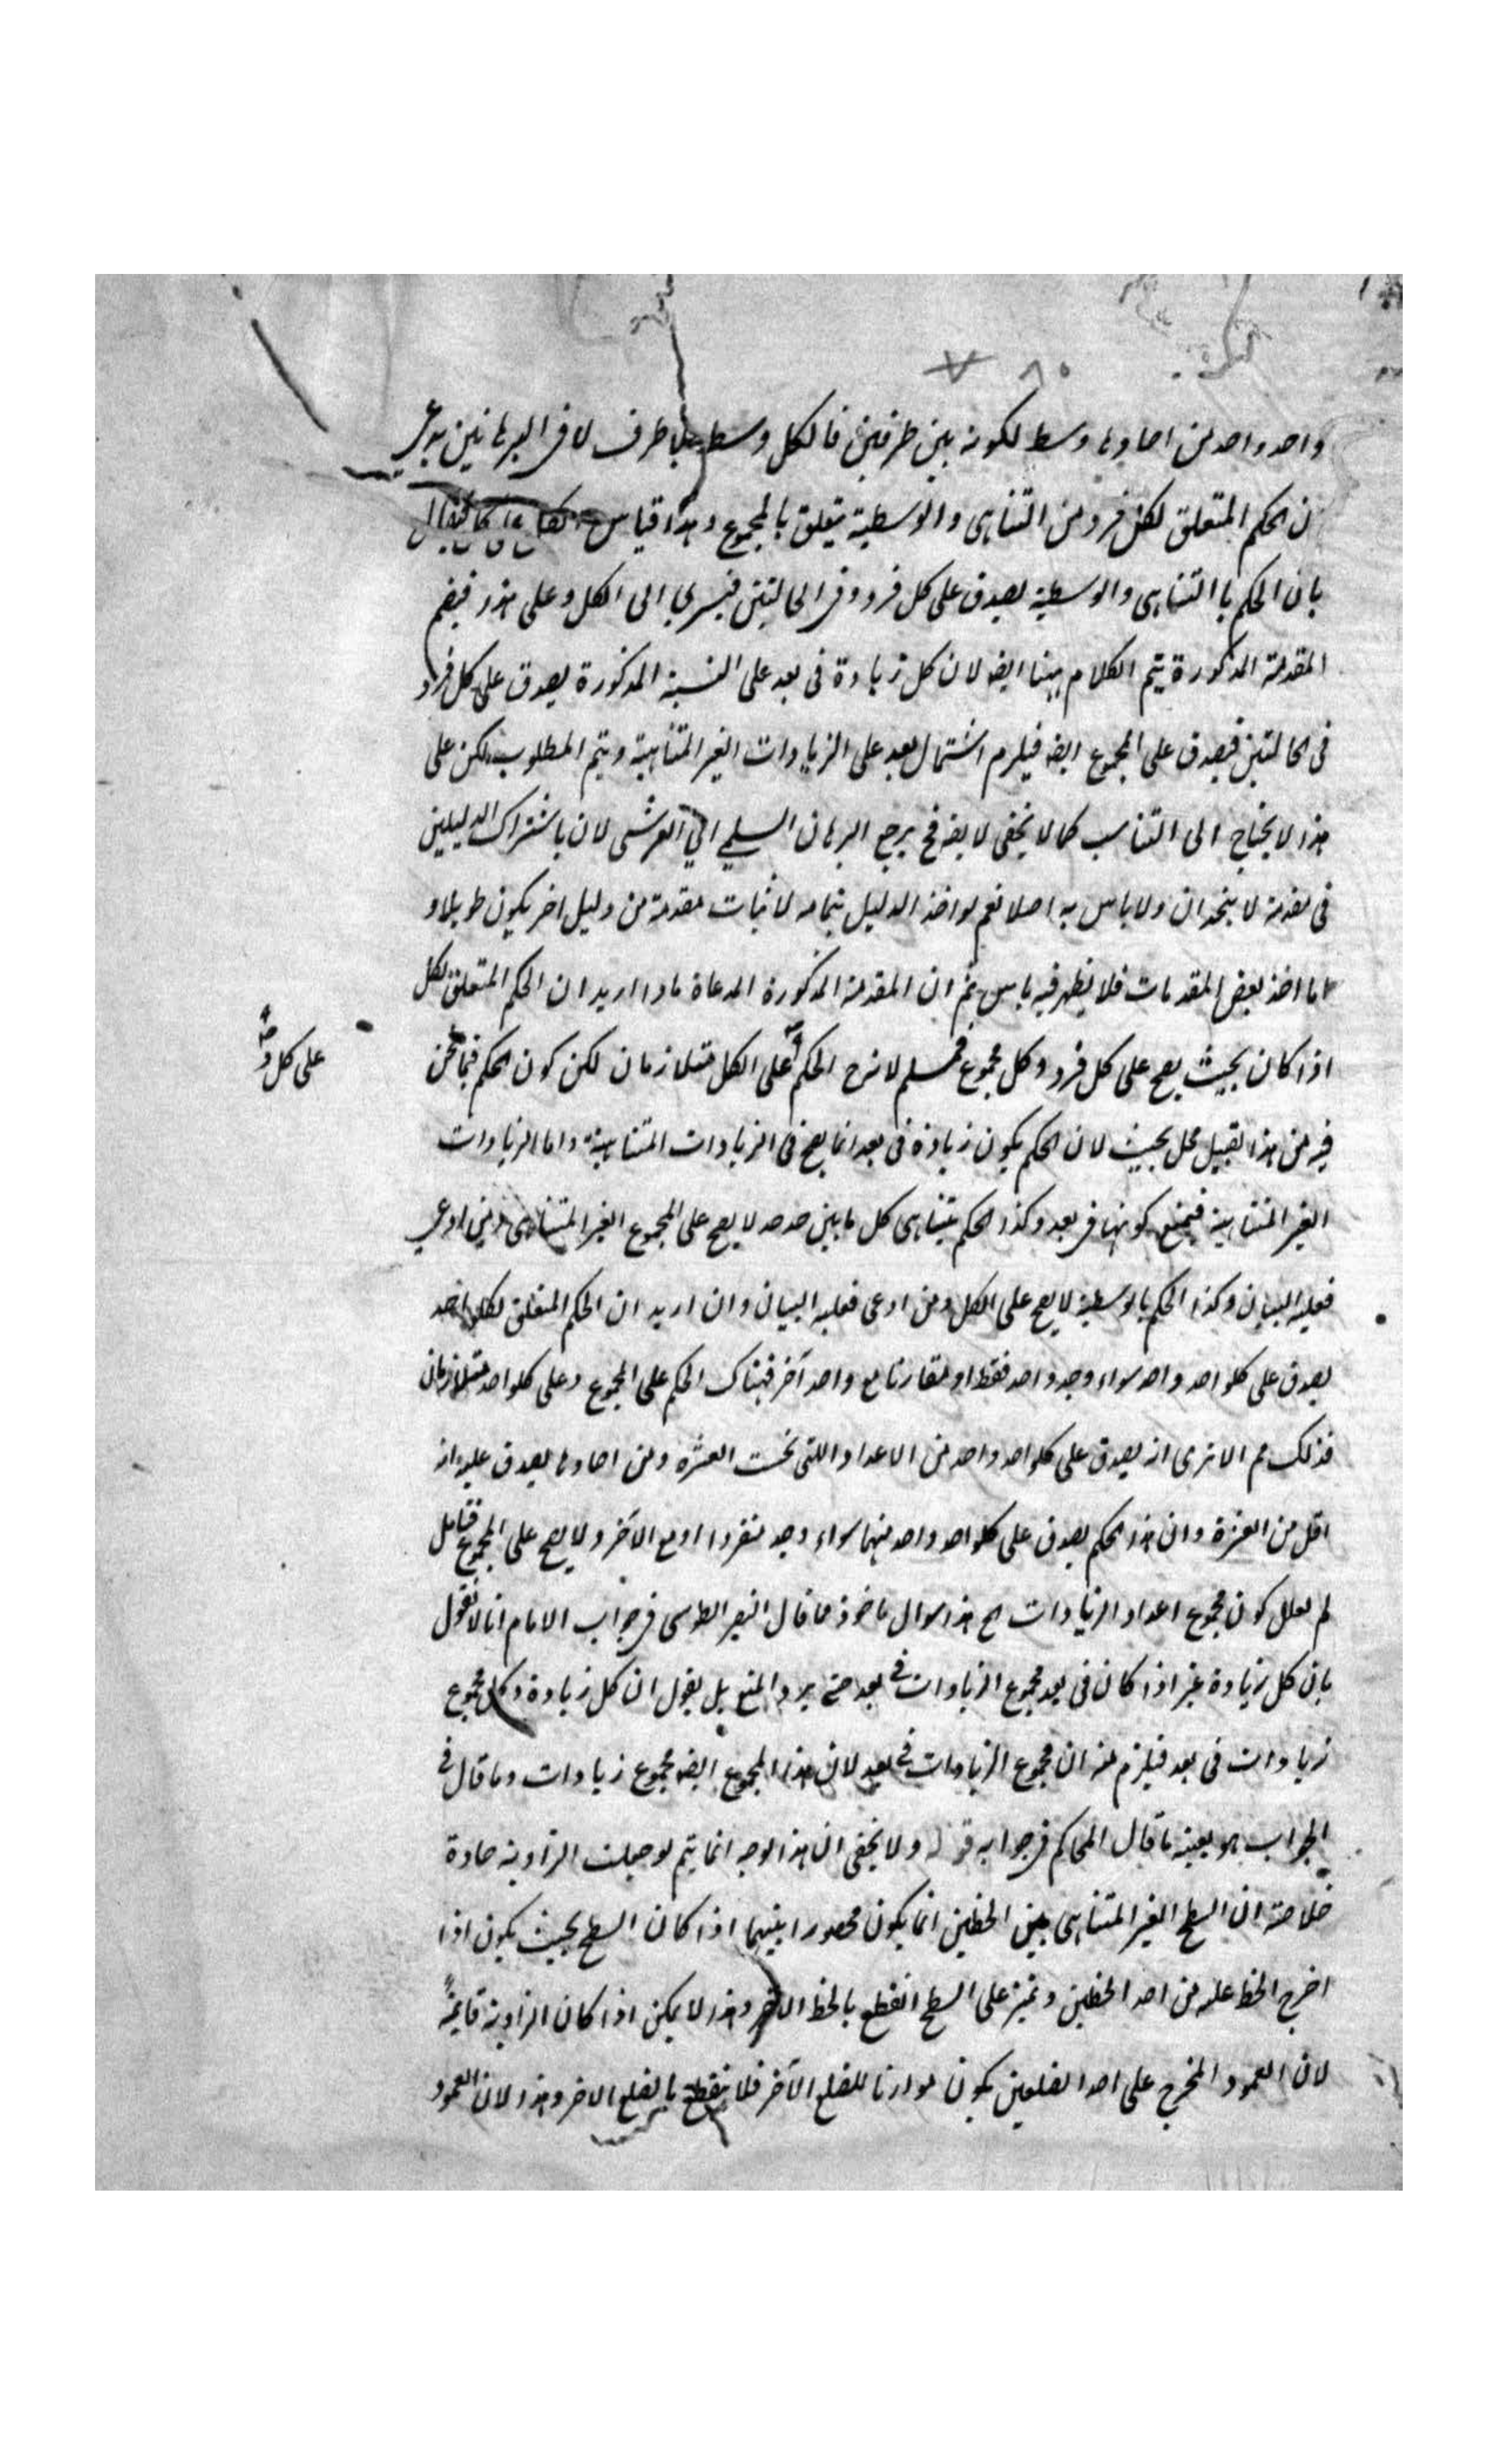 واحد واحد من احادها وسط لكونه بين طرفين فالكل وسط بلا طرف لان فى البرهانين يدعى
ان الحكم المتعلق لكل فرد من التناهى والوسطية يتعلق بالمجموع وهذا قياس
بان الحكم باالتناهى والوسطية يصدق على كل فرد وفى الحالتين فيسرى الى الكل وعلى هذا فبضم
المقدمة المذكورة يتم الكلام ههنا ايضه لان كل زيادة فى بعد على النسبة المذكورة يصدق على كل فرد
فى الحالتين فيصدق على المجموع ايضه فيلزم اشتمال بعد على الزيادات الغير المتناهية ويتم المطلوب لكن على
هذا لا يحتاج الى التناسب كما لا يخفى لا يقه فح يرجع البرهان السلمى الى العرشى لان باشتراك الدليلين
فى مقدمة لا يتحدان ولا باس به اصلا نعم لو اخذ الدليل بتمامه لاثبات مقدمة من دليل اخر يكون طويلا و
اما اخذ بعض المقدمات فلا يظهر فيه باس ثم ان المقدمة المذكورة المدعاة ماذا اريد ان الحكم المتعلق لكل
اذا كان بحيث يصح على كل فرد وكل مجموع فمسلم لانه ح الحكم على الكل متلازمان لكن كون الحكم فيما نحن
على كل و صح
فيه من هذا القبيل محل بحث لان الحكم بكون زيادة فى بعد انما يصح فى الزيادات المتناهية واما الزيادات
الغير المتناهية فيمنع كونها فى بعد وكذا الحكم بتناهى كل ما بين حدحد لا يصح على المجموع الغير المتناهى ومن ادعى
فعليه البيان وكذا الحكم بالوسطية لا يصح على الكل ومن ادعى فعليه البيان وان اريد ان الحكم المتعلق لكلواحد
يصدق على كلواحد واحد سواء وجد واحد فقط او مقارنا مع واحد آخر فهناك الحكم على المجموع وعلى كلواحد متلازمان
فذلك مم الا ترى انه يصدق على كلواحد واحد من الاعداد اللتى تحت العشرة ومن احادها يصدق عليه انه
اقل من العشرة وان هذا الحكم يصدق على كلواحد واحد منهما سواء وجد منفردا او مع الآخر ولا يصح على المجموع فتامل
لم يعلل كون مجموع اعداد الزيادات الخ هذا سوال ماخوذ مما قال النصير الطوسى فى جواب الامام انا لا نقول
بان كل زيادة غير اذا كان فى بعد مجموع الزيادات فى بعد حتى يرد المنع بل يقول ان كل زيادة وكل مجموع
زيادات فى بعد فيلزم منه ان مجموع الزيادات فى بعد لان هذا المجموع ايضه مجموع زيادات وما قال فى
الجواب هو بعينه ما قال المحاكم فى جوابه قوله ولا يخفى ان هذا الوجه انما يتم لو جعلت الزاوية حادة
خلاصته ان السطح الغير المتناهى بين الخطين انما يكون محصورا بينهما اذا كان السطح بحيث يكون اذا
اخرج الخط عليه من احد الخطين ويميز على السطح انقطع بالخط الاخر وهذا لا يمكن اذا كان الزاوية قايمة
لان العمود المخرج على احد الضلعين يكون موازنا للضلع الآخر فلا ينقطع بالضلع الاخر وهذا لان العمود